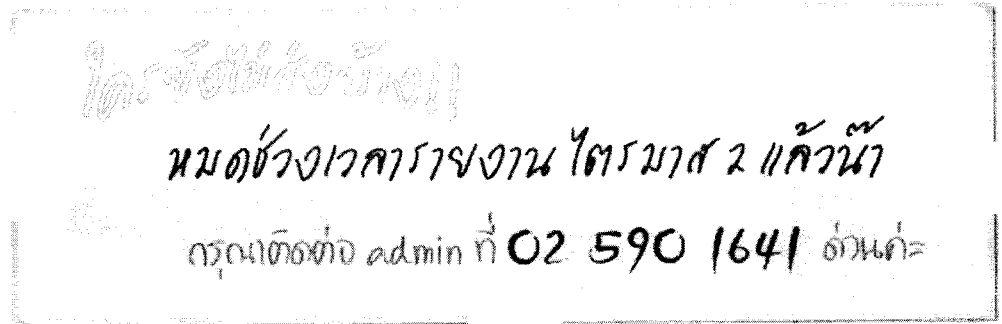 หมดช่วงเวลารายงาน ไตรมาส 2 แล้วน๊า
กรุณาติดต่อ admin ที่ 02 590 1641 ด่วนค่ะ